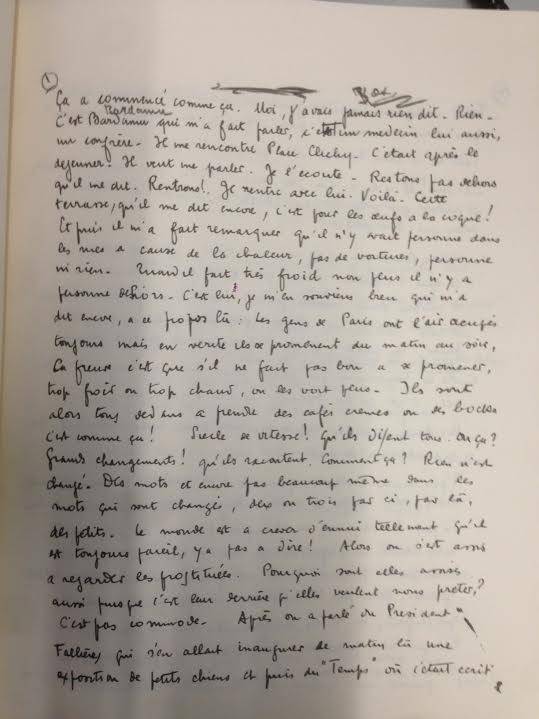 1
Ça a commencé comme ça. Moi, j'avais jamais rien dit. Rien.
Bardamu
C'est Bardamu qui m'a fait parler, c'était un médecin lui aussi,
un confrère. Il me rencontre Place Clichy. C'était après le
dejeuner. Il veut me parler. Je l'écoute. Restons pas dehors
qu'il me dit. Rentrons! Je rentre avec lui. Voilà. Cette
terrasse, qu'il me dit encore, c'est pour les œufs a la coque!
Et puis il m'a fait remarquer qu'il n'y avait personne dans
les rues a cause de la chaleur, pas de voitures, personne
ni rien. Quand il fait très froid non plus il n'y a
personne dehors. C'est lui, je m'en souviens bien qui m'a
dit encore, a ce propos là : Les gens de Paris ont l'air occupés
toujours mais en vérité ils se promènent du matin au soir,
La preuve c'est que s'il ne fait pas bon a se promener,
trop froid ou trop chaud, on les voit plus. Ils sont
alors tous dedans a prendre des cafés cremes ou des bocks
C'est comme ça! Siecle de vitesse! Qu'ils disent tous. Où ça?
Grands changements! qu'ils racontent. Comment ça? Rien n'est
changé. Des mots et encore pas beaucoup même dans les
mots qui sont changés, deux ou trois par ci, par là,
des petits. Le monde est a crever d'ennui tellement qu'il
est toujours pareil, y a pas a dire! Alors on s'est assis
a regarder les prostituées. Pourquoi sont elles assises
aussi puisque c'est leur derrière qu'elles veulent nous preter?
C'est pas commode. Après on a parlé du President
Fallières qui s'en allait inaugurer ce matin là une
exposition de petits chiens et puis du "Temps" où c'était ecrit